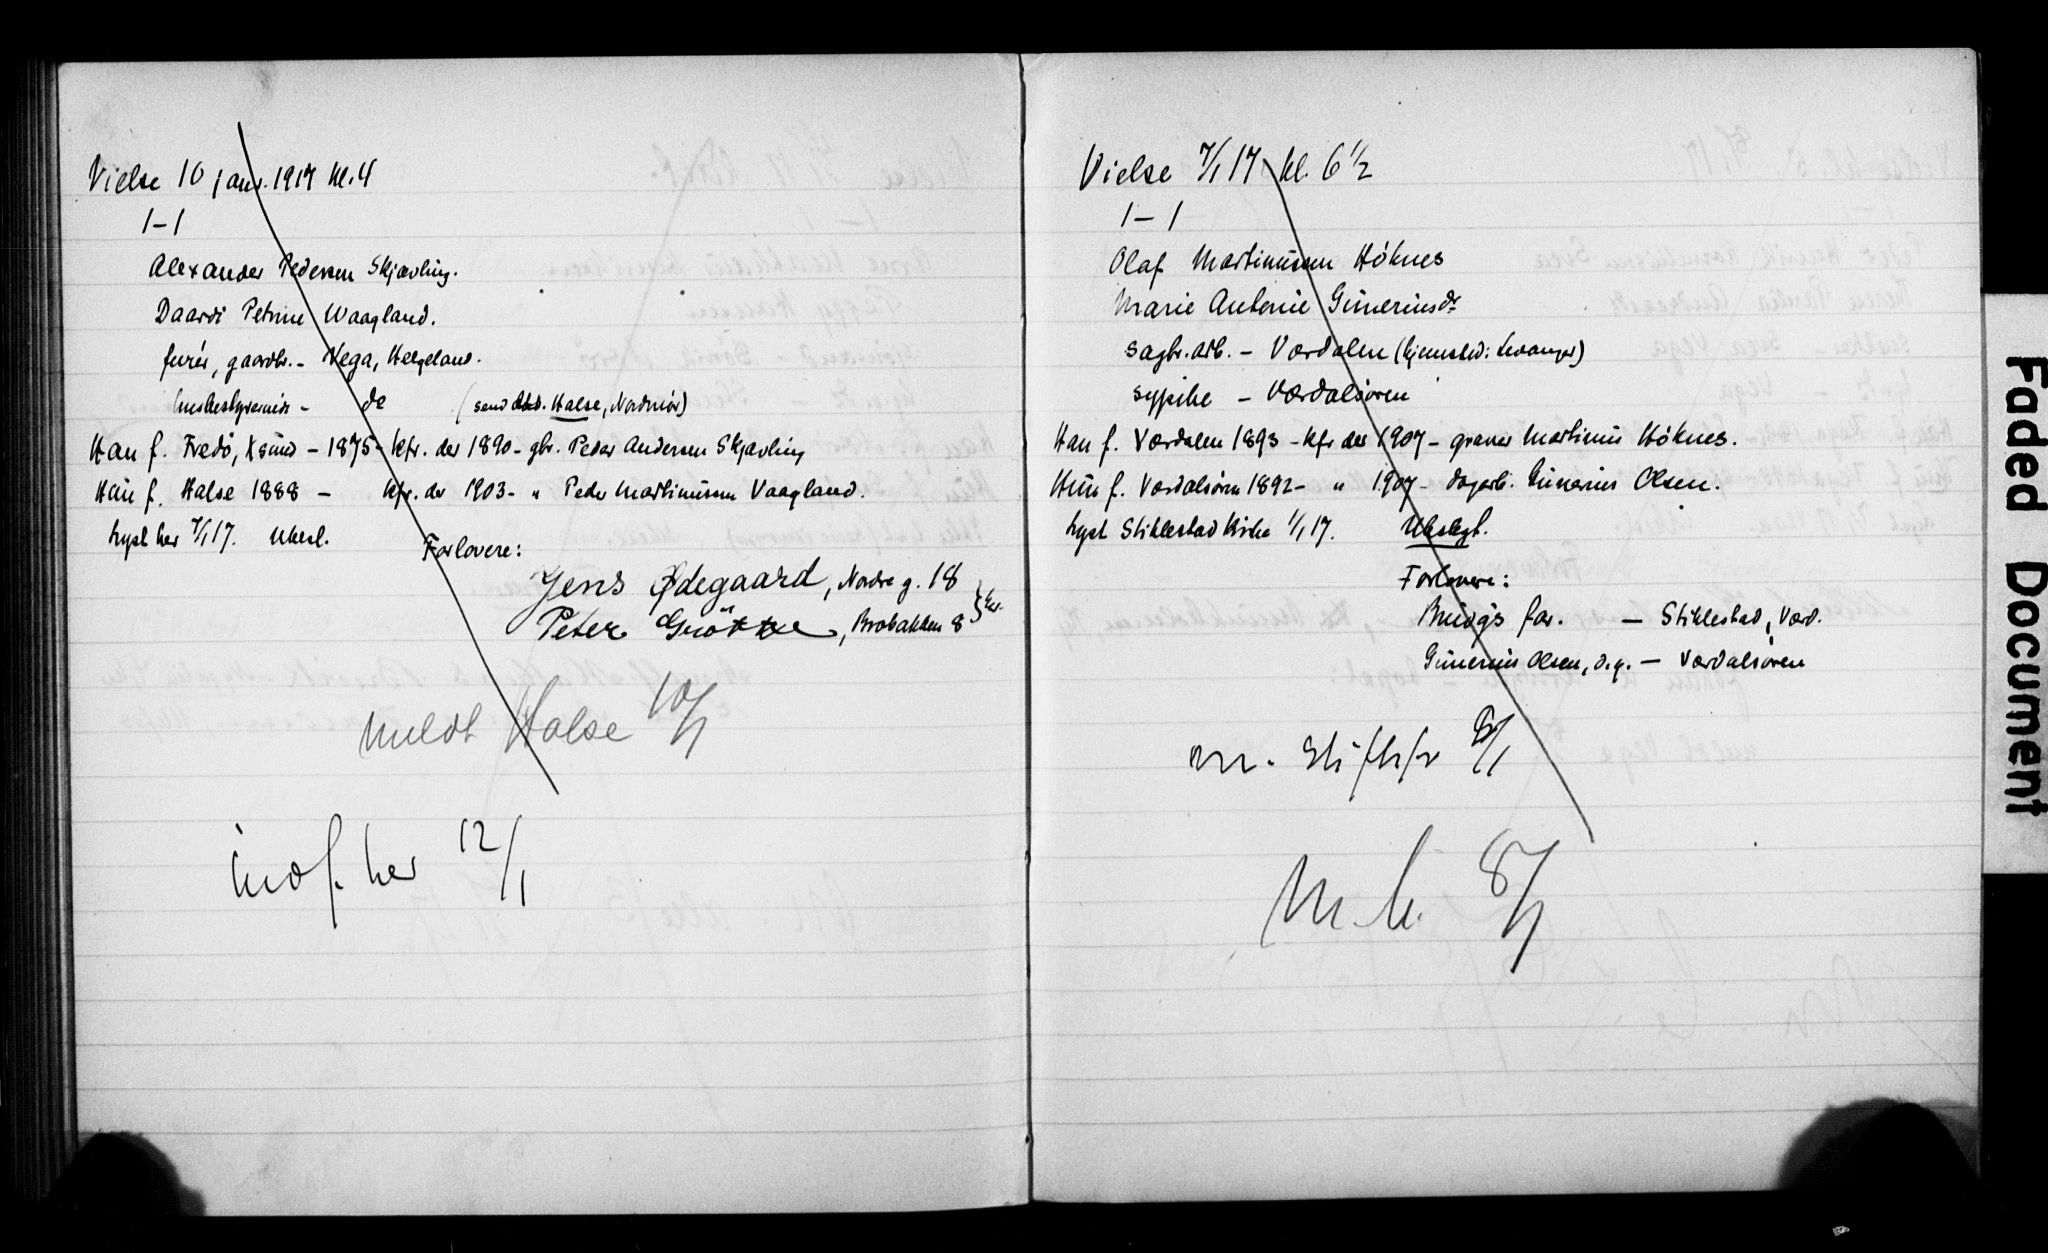 Vielse 10 jan. 1917 kl. 4
1 – 1
Alexander Pedersen Skjævling.
Daardi Petrine Waagland.
furér, gaardbr. – Vega, Helgeland.
husbestyrerinde – do (send Halse, Nordmør)
Han f. Fredö, Xsund – 1875 – kfr. der 1890 – gbr. Peder Andersen Skjævling
Hun f. Halse 1888 – kfr. der 1903 – " Peder Martinussen Vaagland.
Lyst her 7/1 17. Ubesl.
Forlovere:
Jens Ødegaard, Nordre g. 18
Peter, Brobakken 8
meldt Halse 10/1
indf. her 12/1
Vielse 7/1 17 kl. 6 1/2
1 – 1
Olaf Martinussen Höknes
Marie Antonie Guneriusdr
sagbr.arb. – Værdalen (hjemsted: Levanger)
sypike – Værdalsören
Han f. Værdalen 1893 – kfr der 1907 – graver Martinus Höknes.
Hun f. Værdalsören 1892 – " 1907 – dagarb. Gunerius Olsen.
Lyst Stiklestad Kirke 1/1 17. Ubslegt.
Forlovere:
Brudgs far. – Stiklestad, Værd.
Gunerius Olsen, d.y. – Værdalsören
m. 8/1
m. h. 8/1
Faded Document